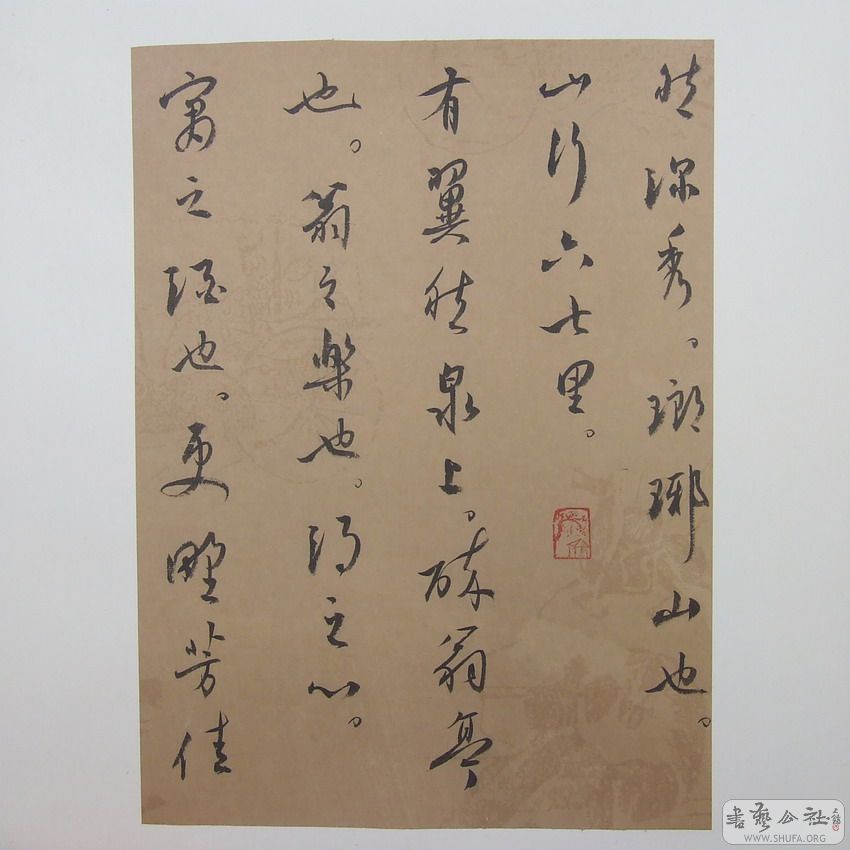 然深秀、瑯琊山也。
山行六七里。
有翼然泉上。醉翁亭
也。翁之樂也。得之心。
寓之酒也、更野芳佳
書藝公社
WWW.SHUFA.ORG